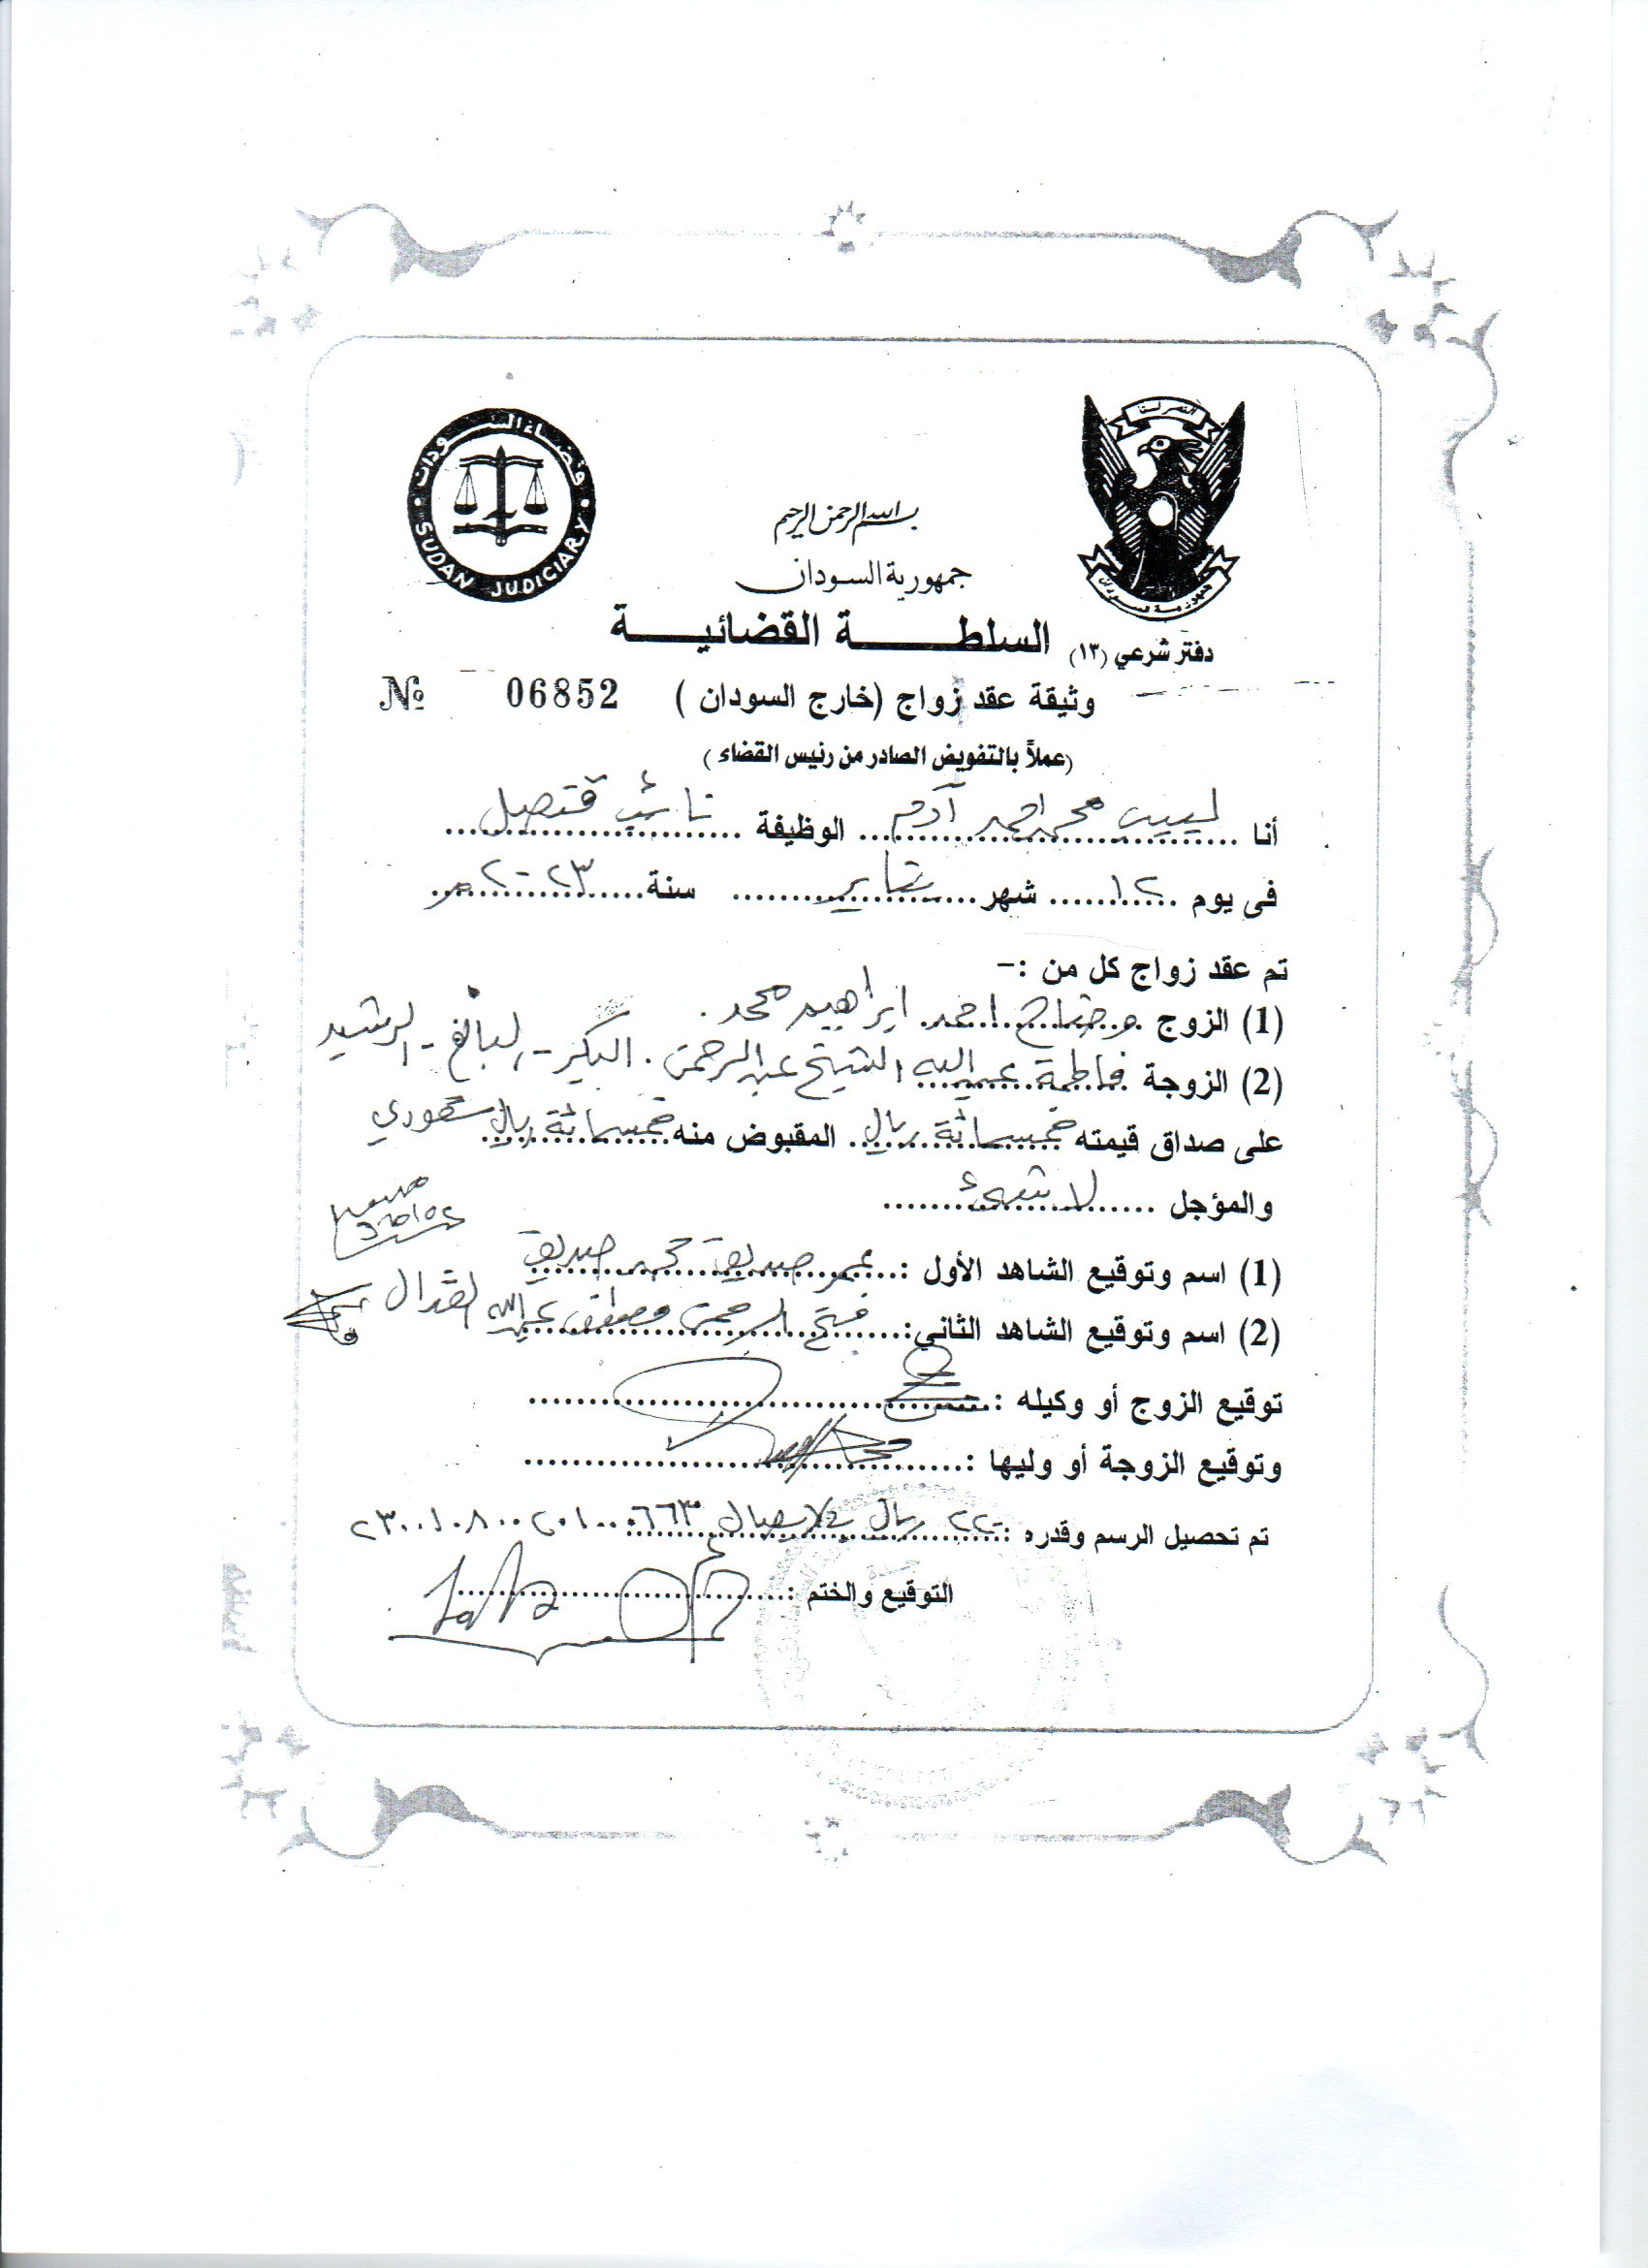 قضاء السودان
SUDAN JUDICIARY
النصر لنا
جمهورية السودان
بسم الله الرحمن الرحيم
جمهورية السودان
السلطة القضائية
دفتر شرعي (١٣)
وثيقة عقد زواج (خارج السودان) № 06852
(عملاً بالتفويض الصادر من رئيس القضاء)
أنا لبيب محمد احمد آدم الوظيفة نائب قنصل
فى يوم ١٢ شهر يناير سنة ٢٠٢٣م
تم عقد زواج كل من :-
(1) الزوج احمد ابراهيم محمد.
(2) الزوجة فاطمة عبدالله الشيخ عبدالرحمن. البكر - البالغ - الرشيد
على صداق قيمته خمسمائة ريال المقبوض منه خمسمائة ريال سعودي
والمؤجل لا شيء
(1) اسم وتوقيع الشاهد الأول : عمر صديق محمد صديق
(2) اسم وتوقيع الشاهد الثاني: فتح الرحمن مصطفى عبدالله القدال
توقيع الزوج أو وكيله :
وتوقيع الزوجة أو وليها :
تم تحصيل الرسم وقدره : ٢٢٠ ريال
التوقيع والختم :